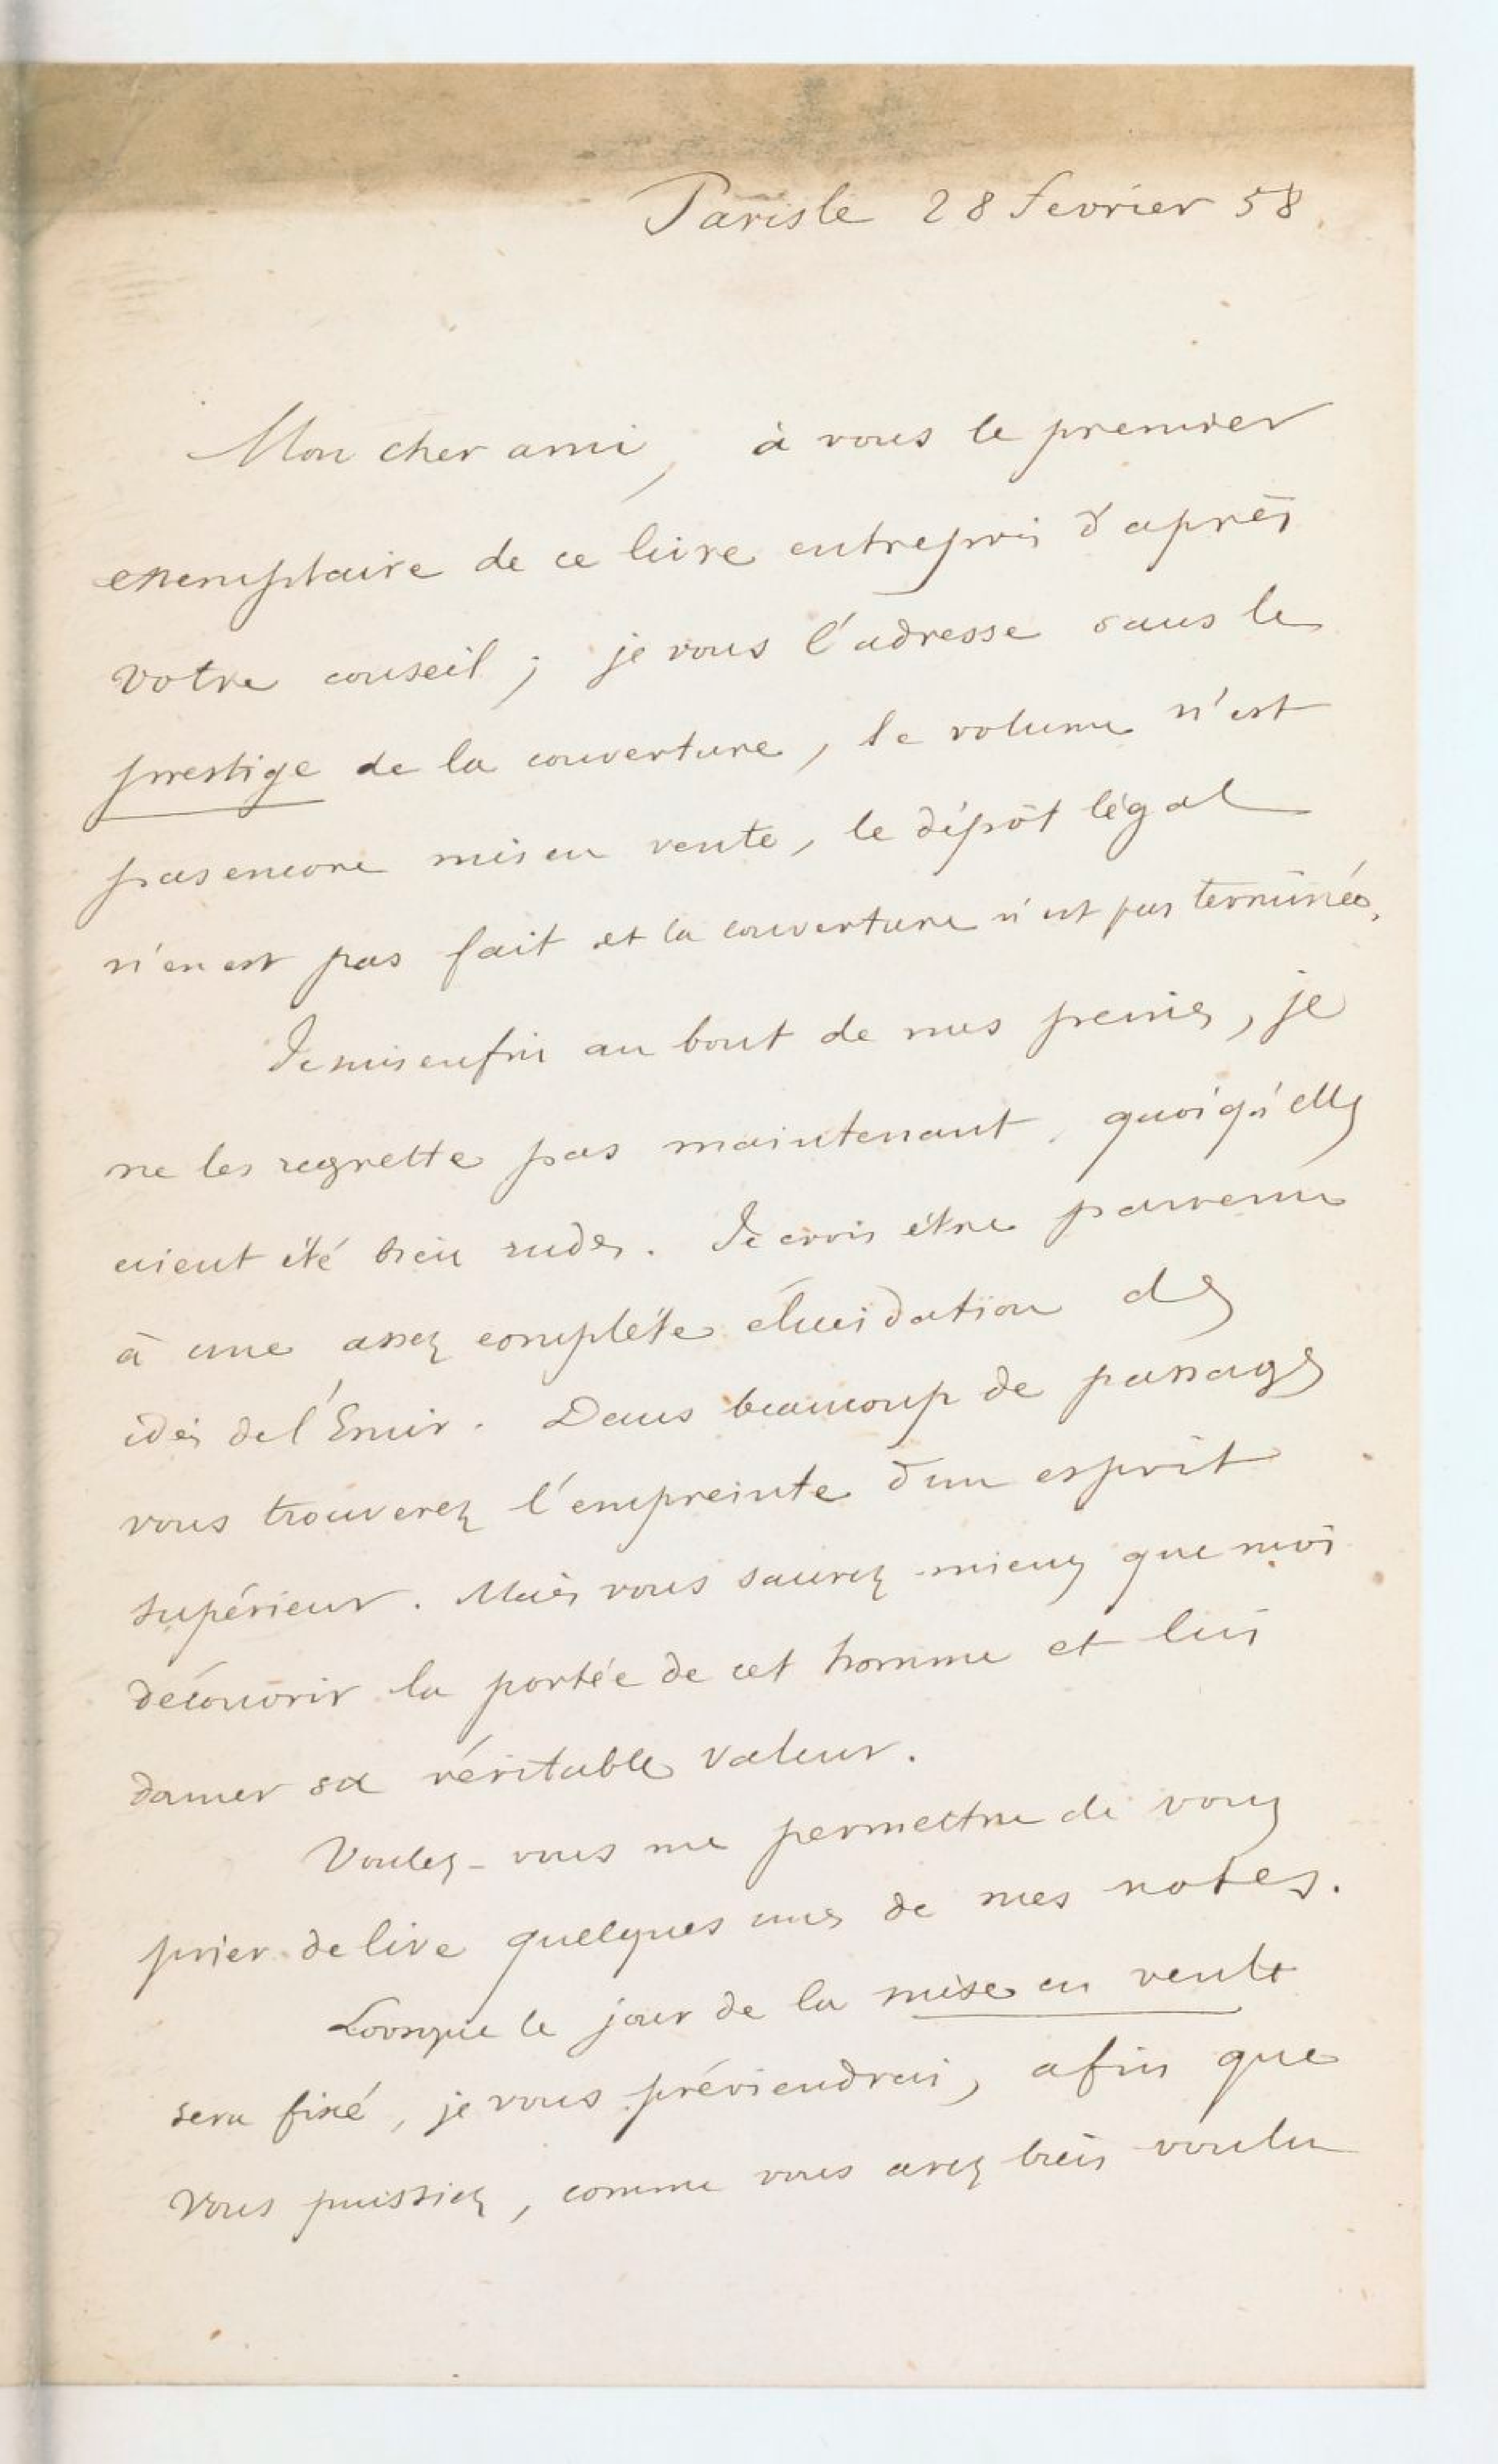 Paris le 28 fevrier 58.
Mon cher ami, à vous le premier
exemplaire de ce livre entrepris d'après
votre conseil ; je vous l'adresse sans le
prestige de la couverture, le volume n'est
pas encore mis en vente, le dépôt légal
n'en est pas fait et la couverture n'est pas terminée.
Je suis enfin au bout de mes peines, je
ne les regrette pas maintenant, quoiqu'elles
aient été bien rudes. Je crois être parvenu
à une assez complète élucidation des
idées de l'Emir. Dans beaucoup de passages
vous trouverez l'empreinte d'un esprit
supérieur. Mais vous saurez mieux que moi
découvrir la portée de cet homme et lui
donner sa véritable valeur.
Voulez-vous me permettre de vous
prier de lire quelques unes de mes notes.
Lorsque le jour de la mise en vente
sera fixé, je vous préviendrai, afin que
vous puissiez, comme vous avez bien voulu